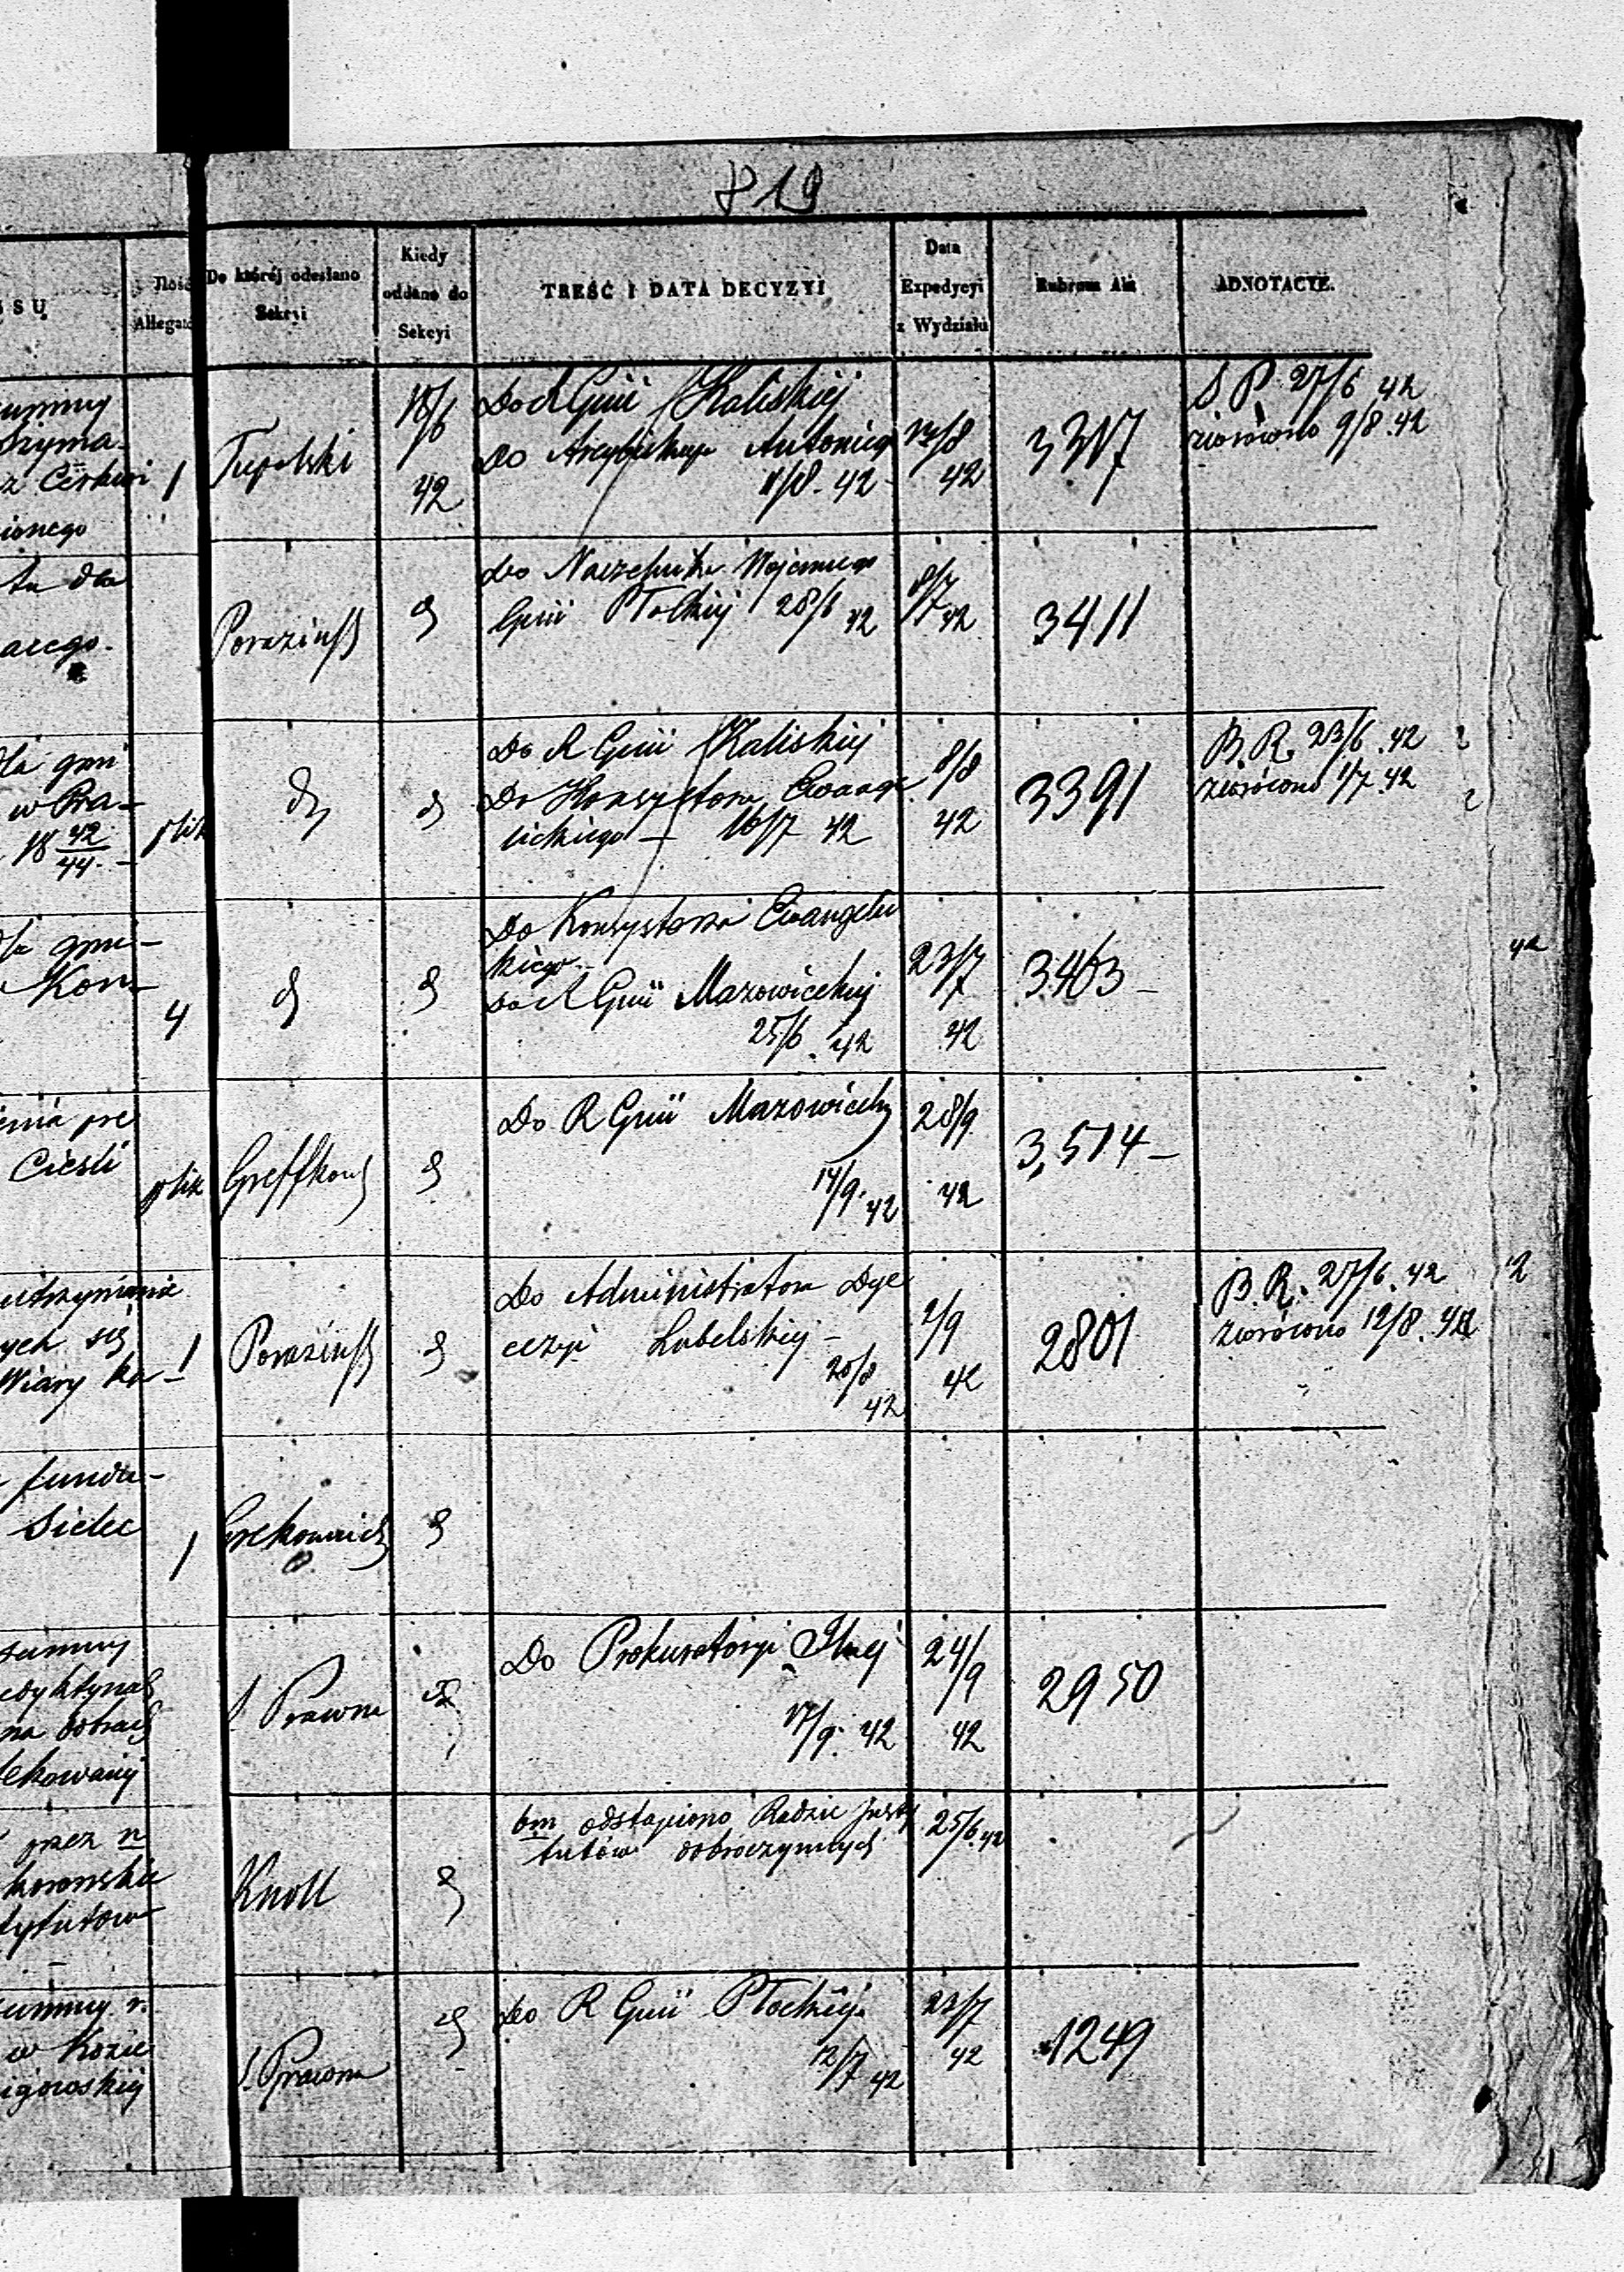 819
SSU
Ilość
Allegató
Do któréj odesłano
Sekcyi
Kiedy
oddano do
Sekcyi
TREŚĆ I DATA DECYZYI
Data
Expedycyi
z Wydziału
Rubrum Akt
ADNOTACYE.
summy
z Cerkwi
ionego
1
18/6
42
Do R Gnii Kaliskiéj
Do Arcybiskupa Antoniego
11/8. 42
12/8
42
3317
S P. 27/6 42
zwrócono 9/8. 42
tu dla
acego.
Porazińs
d
do Naczelnika Wojennego
Gnii Płockiej 28/6 42
8/7 42
3411
dla gmi
w Pra-
18 42/44. -
plik
d
d
Do R Gnii Kaliskiej
Do Konsystorza Ewange
lickiego - 16/7 42
8/8
42
3391
B. R. 23/6. 42
zwrócono 1/7. 42
dla gmi-
Kon-
4
d
d
Do Konsystorza Ewangelic
kiego -
Do R Gnii Mazowieckiej
25/6. 42
23/7
42
3463 -
42
enia prze
Cieśli
plik
Greffkow
d
Do R Gnii Mazowieck
14/9. 42
28/9
42
3,514 -
utrzymanie
ych się
Wiary ka-
1
Porazińs
d
Do Administratora Dye
cezyi Lubelskiej -
20/8
42
2/9
42
2801
B. R. 27/6. 42
zwrócono 12/8. 42
12
fundu-
Sielec
1
d
summy
na dobrach
tekowanej
S. Prawna
d
Do Prokuratoryi Jlnej
17/9. 42
24/9
42
2950
przez n
koronskie
tytutow
Knoll
d
bm odstąpiono Radzie Insty
tutów dobroczynnych
25/6. 42
summy r.
w Kozie
igowskiej
S. Prawna
d
do R Gnii Płockiej
12/7 42
23/7
42
1249